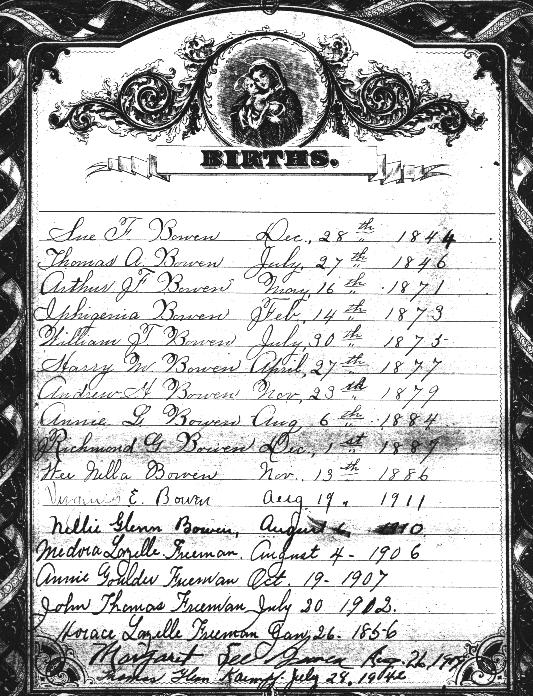 BIRTHS.
Sue F Bowen Dec, 28th 1844
Thomas A. Bowen July, 27th 1846
Arthur J F Bowen May, 16th 1871
Iphigenia Bowen Feb, 14th 1873
William J T Bowen July, 30th 1875
Harry W. Bowen April, 27th 1877
Andrew H Bowen Nov, 23th 1879
Annie G Bowen Aug 6th 1884
Richmond G Bowen Dec, 1st 1889
Nilla Bowen Nov. 13th 1886
E. Bowen Aug 19, 1911
Nellie Glenn Bowen, August
Medora Lazelle Freeman. August 4 - 1906
Annie Goulder Freeman Oct. 19 - 1907
John Thomas Freeman July 20 1902.
Horace Lazelle Freeman Jan, 26 - 1856
Margaret Bowen Aug. 26,
Thomas Glen July 28, 1942